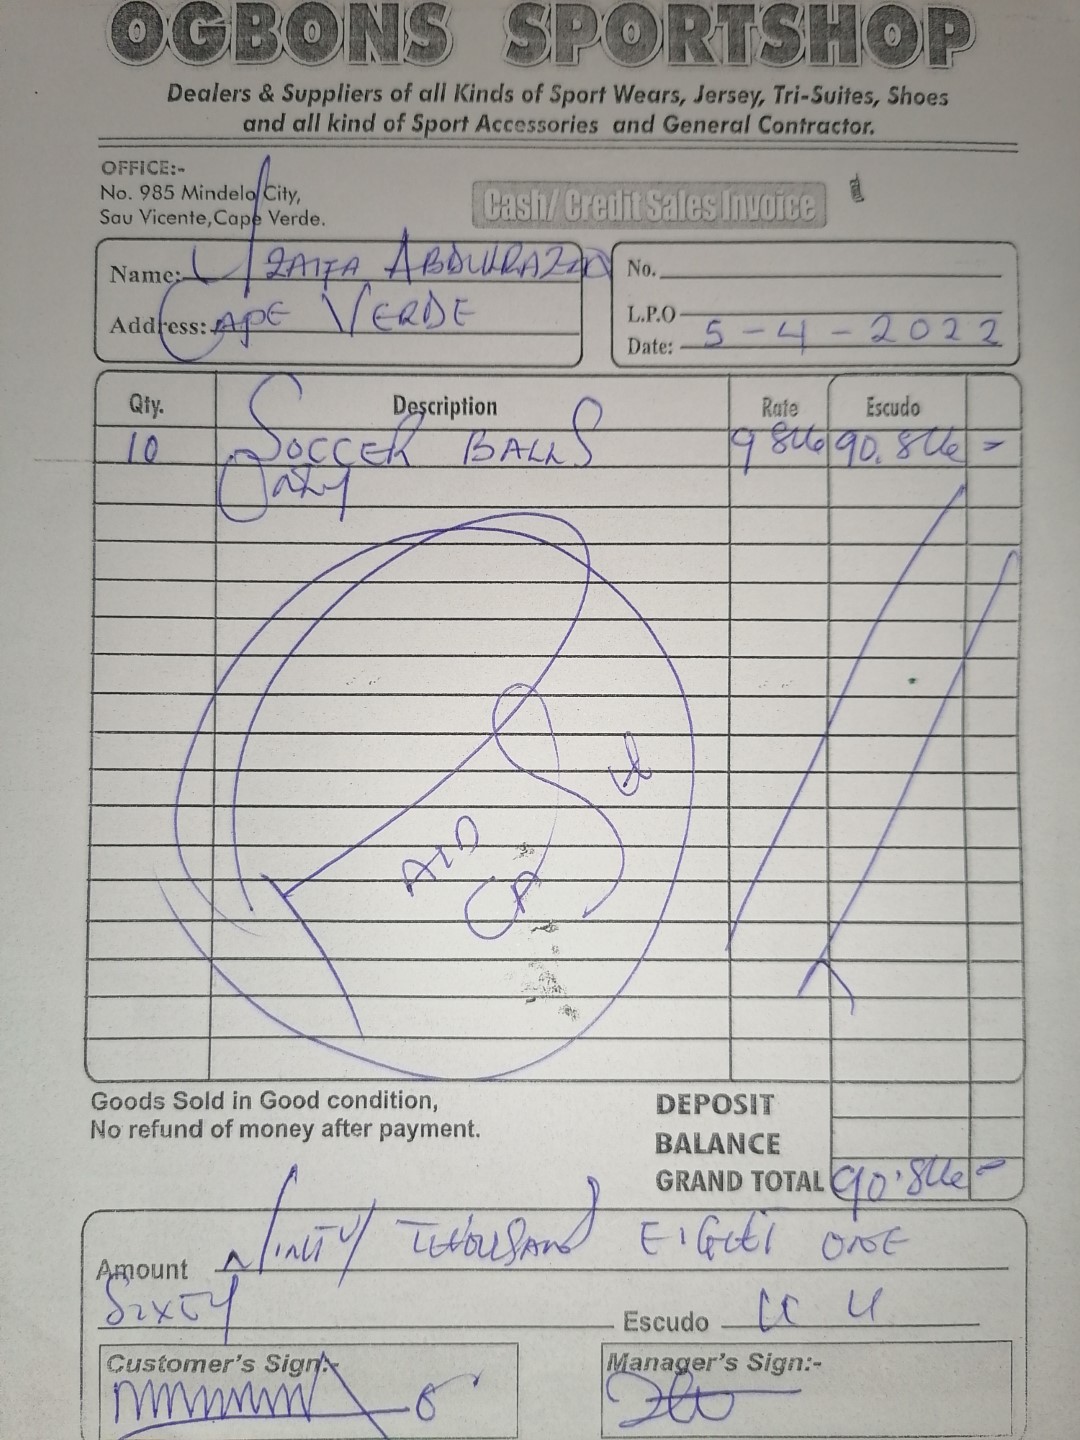 OGBONS SPORTSHOP
Dealers & Suppliers of all Kinds of Sport Wears, Jersey, Tri-Suites, Shoes
and all kind of Sport Accessories and General Contractor.
OFFICE:-
No. 985 Mindelo City,
Sau Vicente, Cape Verde.
Cash/ Credit Sales Invoice
Name:
Address: CAPE VERDE
No.
L.P.O
Date: 5-4-2022
Qty. Description Rate Escudo
10 SOCCER BALLS
ONLY
Goods Sold in Good condition,
No refund of money after payment.
DEPOSIT
BALANCE
GRAND TOTAL
Amount THOUSAND ONE
SIXTY Escudo
Customer's Sign:-
Manager's Sign:-